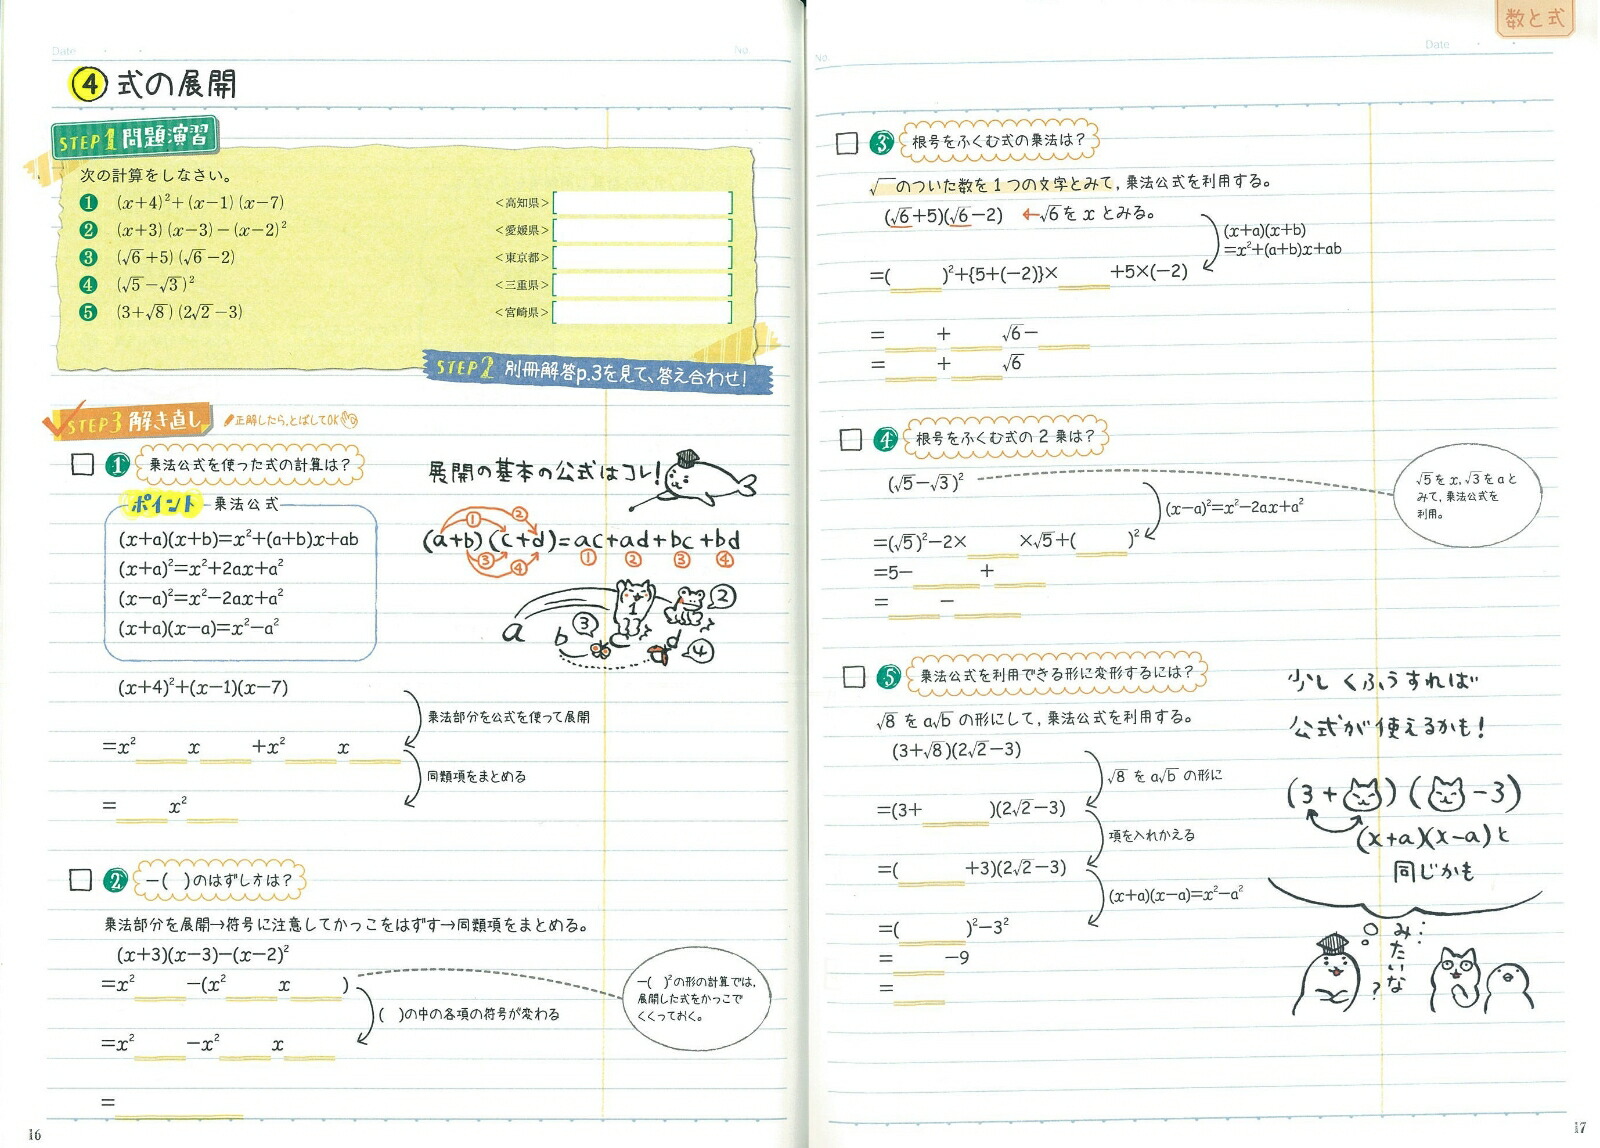 Date
No.
④ 式の展開
STEP1 問題演習
次の計算をしなさい。
❶ (x+4)²+(x−1)(x−7) <高知県>
❷ (x+3)(x−3)−(x−2)² <愛媛県>
❸ (√6+5)(√6−2) <東京都>
❹ (√5−√3)² <三重県>
❺ (3+√8)(2√2−3) <宮崎県>
STEP2 別冊解答p.3を見て、答え合わせ!
STEP3 解き直し 正解したら、とばしてOK
❶ 乗法公式を使った式の計算は?
ポイント 乗法公式
(x+a)(x+b)=x²+(a+b)x+ab
(x+a)²=x²+2ax+a²
(x−a)²=x²−2ax+a²
(x+a)(x−a)=x²−a²
展開の基本の公式はコレ!
① ②
(a+b)(c+d)=ac+ad+bc+bd
③ ④ ① ② ③ ④
1 ②
a b ③ d ④
(x+4)²+(x−1)(x−7)
乗法部分を公式を使って展開
=x² x +x² x
同類項をまとめる
= x²
❷ −( )のはずし方は?
乗法部分を展開→符号に注意してかっこをはずす→同類項をまとめる。
(x+3)(x−3)−(x−2)²
=x² −(x² x )
( )の中の各項の符号が変わる
−( )²の形の計算では,
展開した式をかっこで
くくっておく。
=x² −x² x
=
16
数と式
No.
Date
❸ 根号をふくむ式の乗法は?
√ のついた数を1つの文字とみて, 乗法公式を利用する。
(√6+5)(√6−2) ←√6を x とみる。
(x+a)(x+b)
=x²+(a+b)x+ab
=( )²+{5+(−2)}× +5×(−2)
= + √6−
= + √6
❹ 根号をふくむ式の2乗は?
(√5−√3)²
√5をx, √3をaと
みて, 乗法公式を
利用。
(x−a)²=x²−2ax+a²
=(√5)²−2× ×√5+( )²
=5− +
= −
❺ 乗法公式を利用できる形に変形するには?
√8 を a√b の形にして, 乗法公式を利用する。
(3+√8)(2√2−3)
√8 を a√b の形に
=(3+ )(2√2−3)
項を入れかえる
=( +3)(2√2−3)
(x+a)(x−a)=x²−a²
=( )²−3²
= −9
=
少しくふうすれば
公式が使えるかも!
(3+ )( −3)
(x+a)(x−a)と
同じかも
みたいな?
17